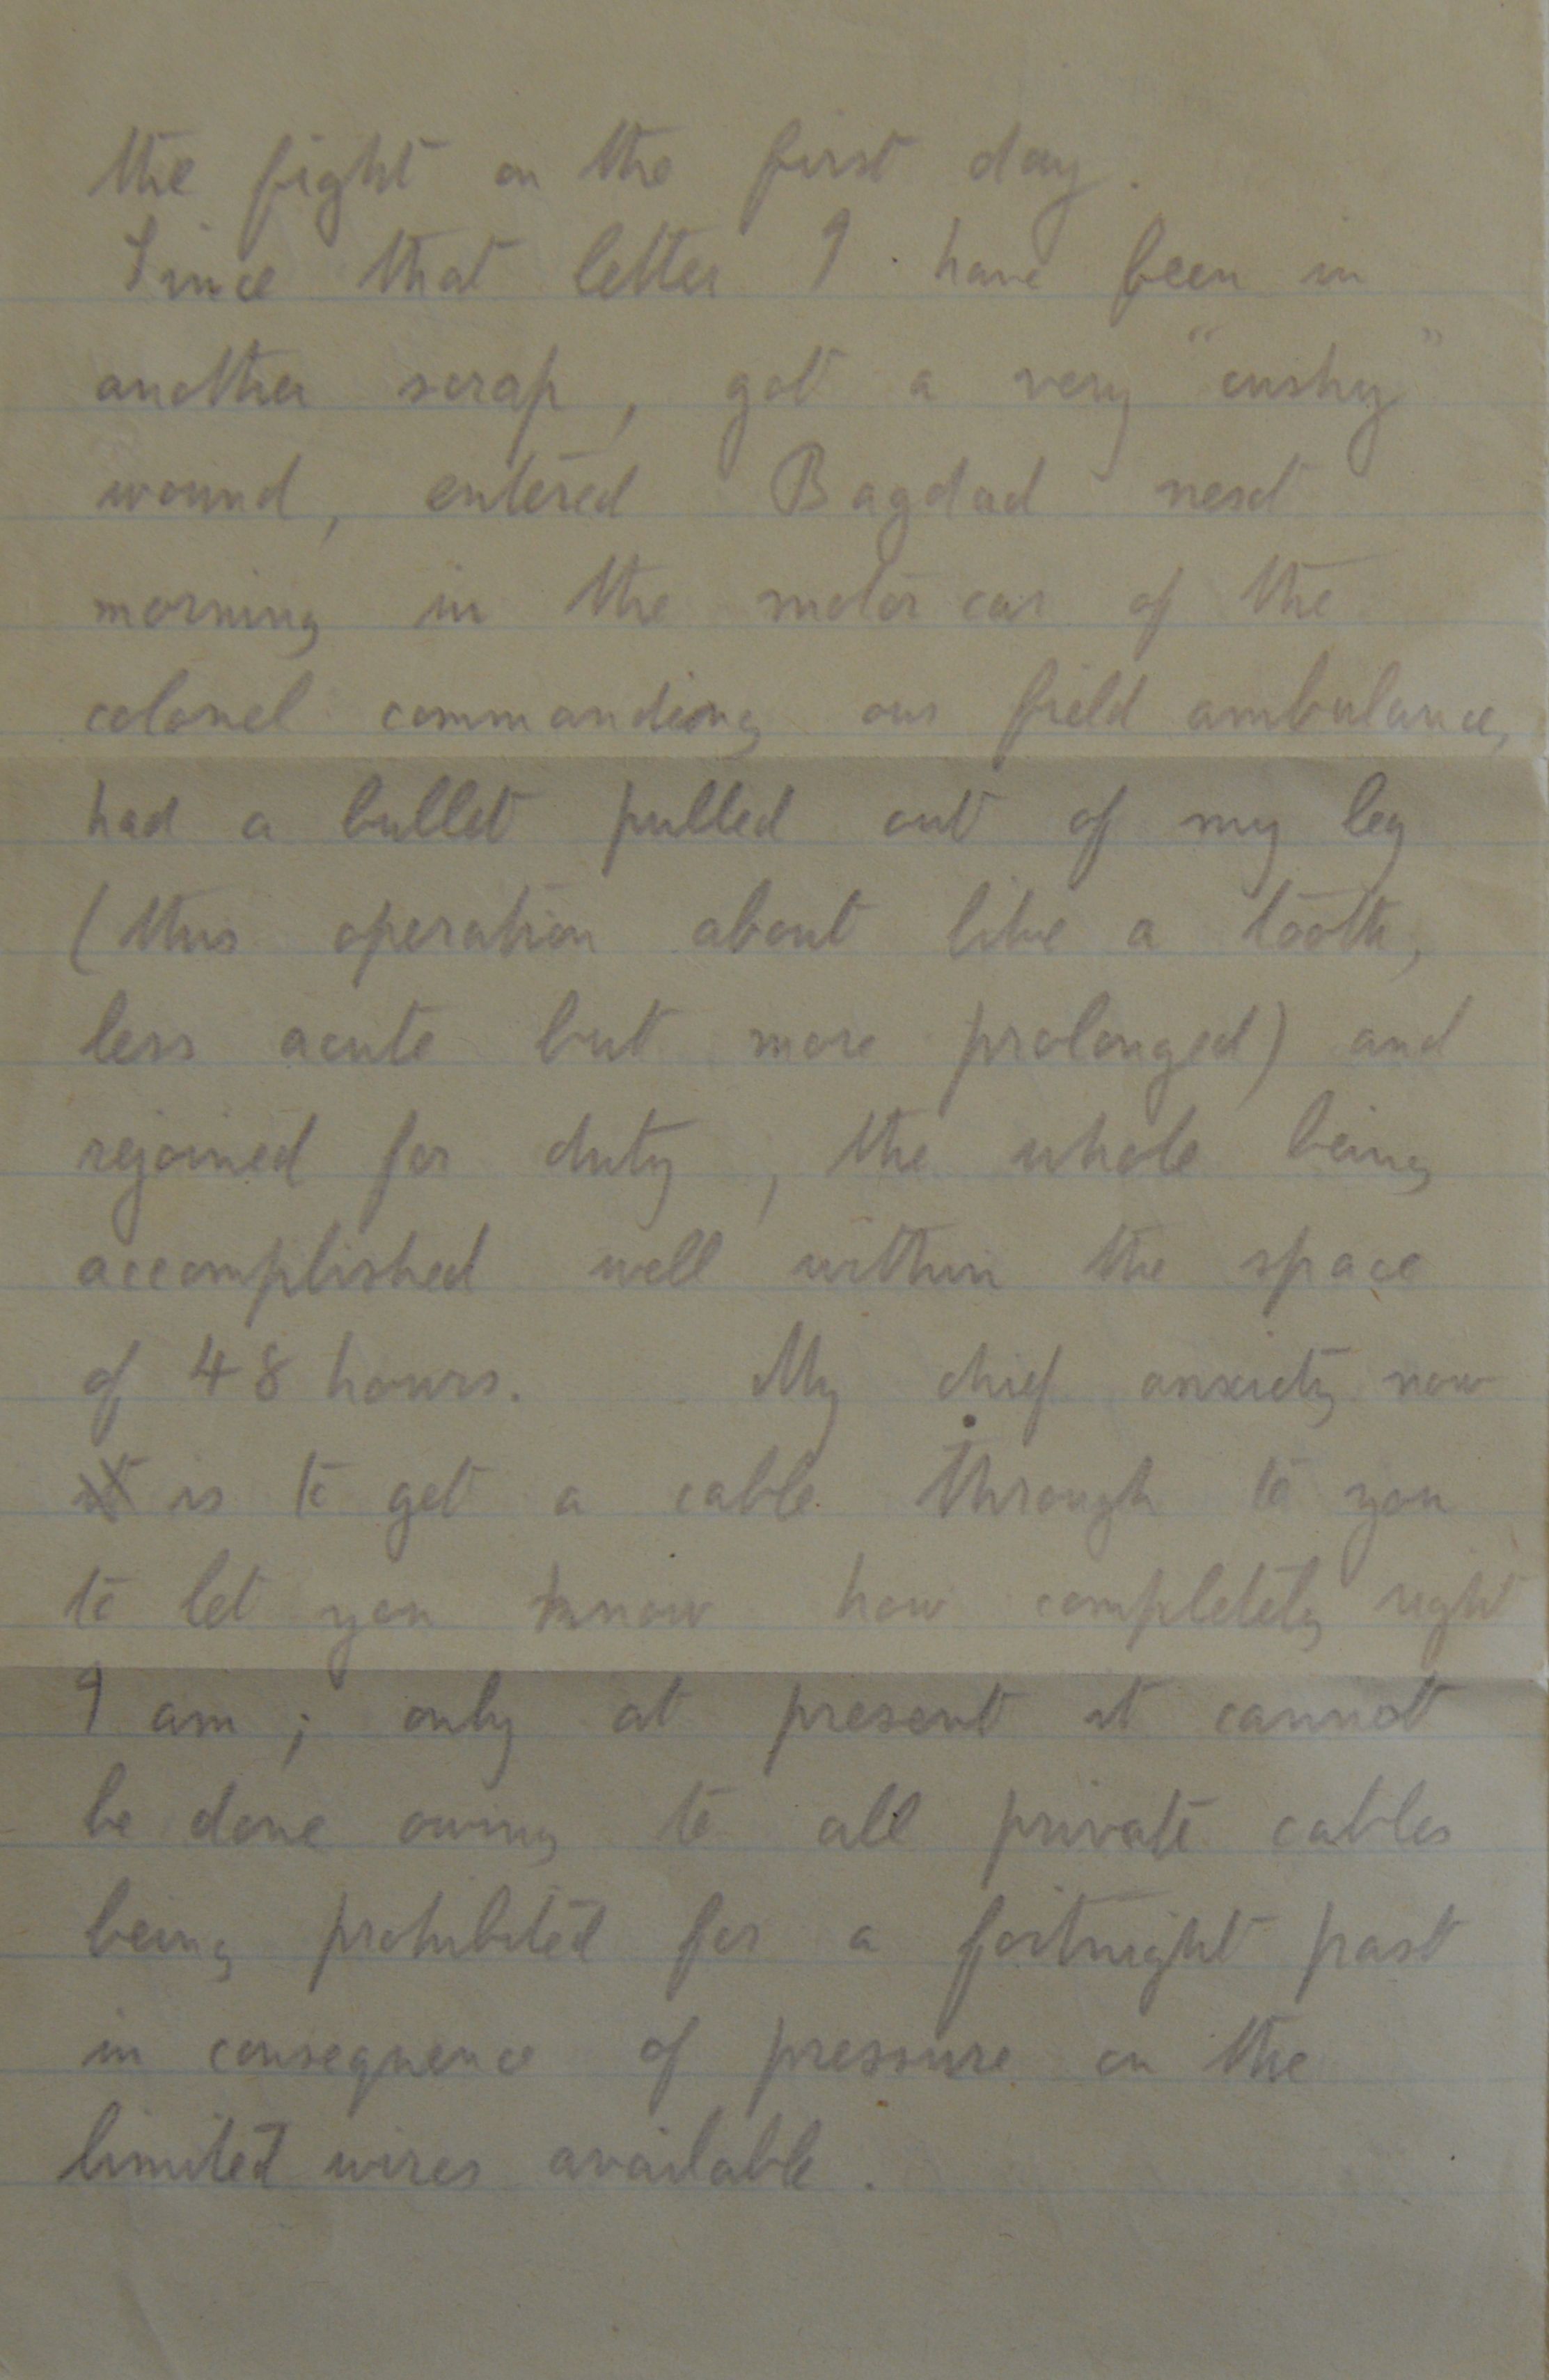 the fight on the first day.
Since that letter I have been in
another scrap, got a very "cushy"
wound, entered Bagdad next
morning in the motor car of the
colonel commanding our field ambulance,
had a bullet pulled out of my leg
(this operation about like a tooth,
less acute but more prolonged) and
rejoined for duty, the whole being
accomplished well within the space
of 48 hours. My chief anxiety now
is to get a cable through to you
to let you know how completely right
I am; only at present it cannot
be done owing to all private cables
being prohibited for a fortnight past
in consequence of pressure on the
limited wires available.